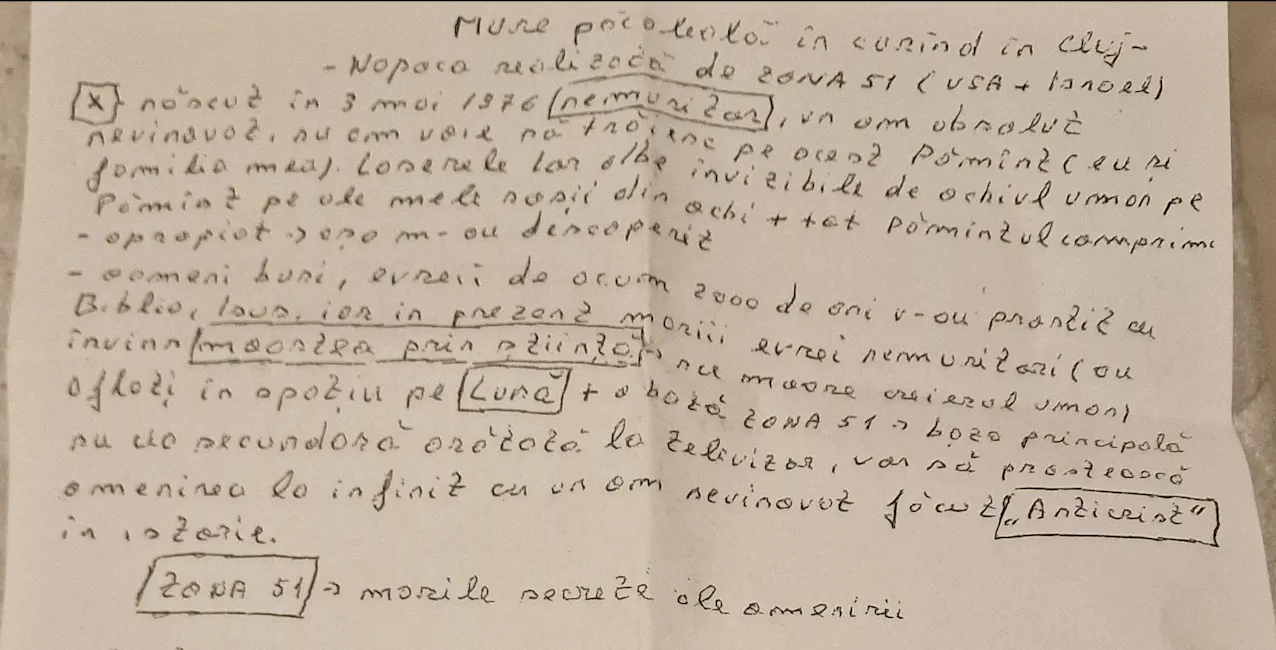 Mare păcăleală în curînd în Cluj-
- Napoca realizată de ZONA 51 (USA + Israel)
[X] născut în 3 mai 1976 (nemuritor), un om absolut
nevinovat, nu am voie să trăiesc pe acest Pămînt (eu și
familia mea). Laserele lor albe invizibile de ochiul uman pe
Pămînt pe ale mele sosii din ochi + tot Pămîntul comprim
- apropiat → așa m-au descoperit
- oameni buni, evreii de acum 2000 de ani v-au prostit cu
Biblia, Isus, iar în prezent marii evrei nemuritori (au
învins moartea prin știință → nu moare creierul uman)
aflați în spațiu pe Lună + o bază ZONA 51 → baza principală
nu cea secundară arătată la televizor, vor să prostească
omenirea la infinit cu un om nevinovat făcut „Anticrist"
în istorie.
ZONA 51 → marile secrete ale omenirii